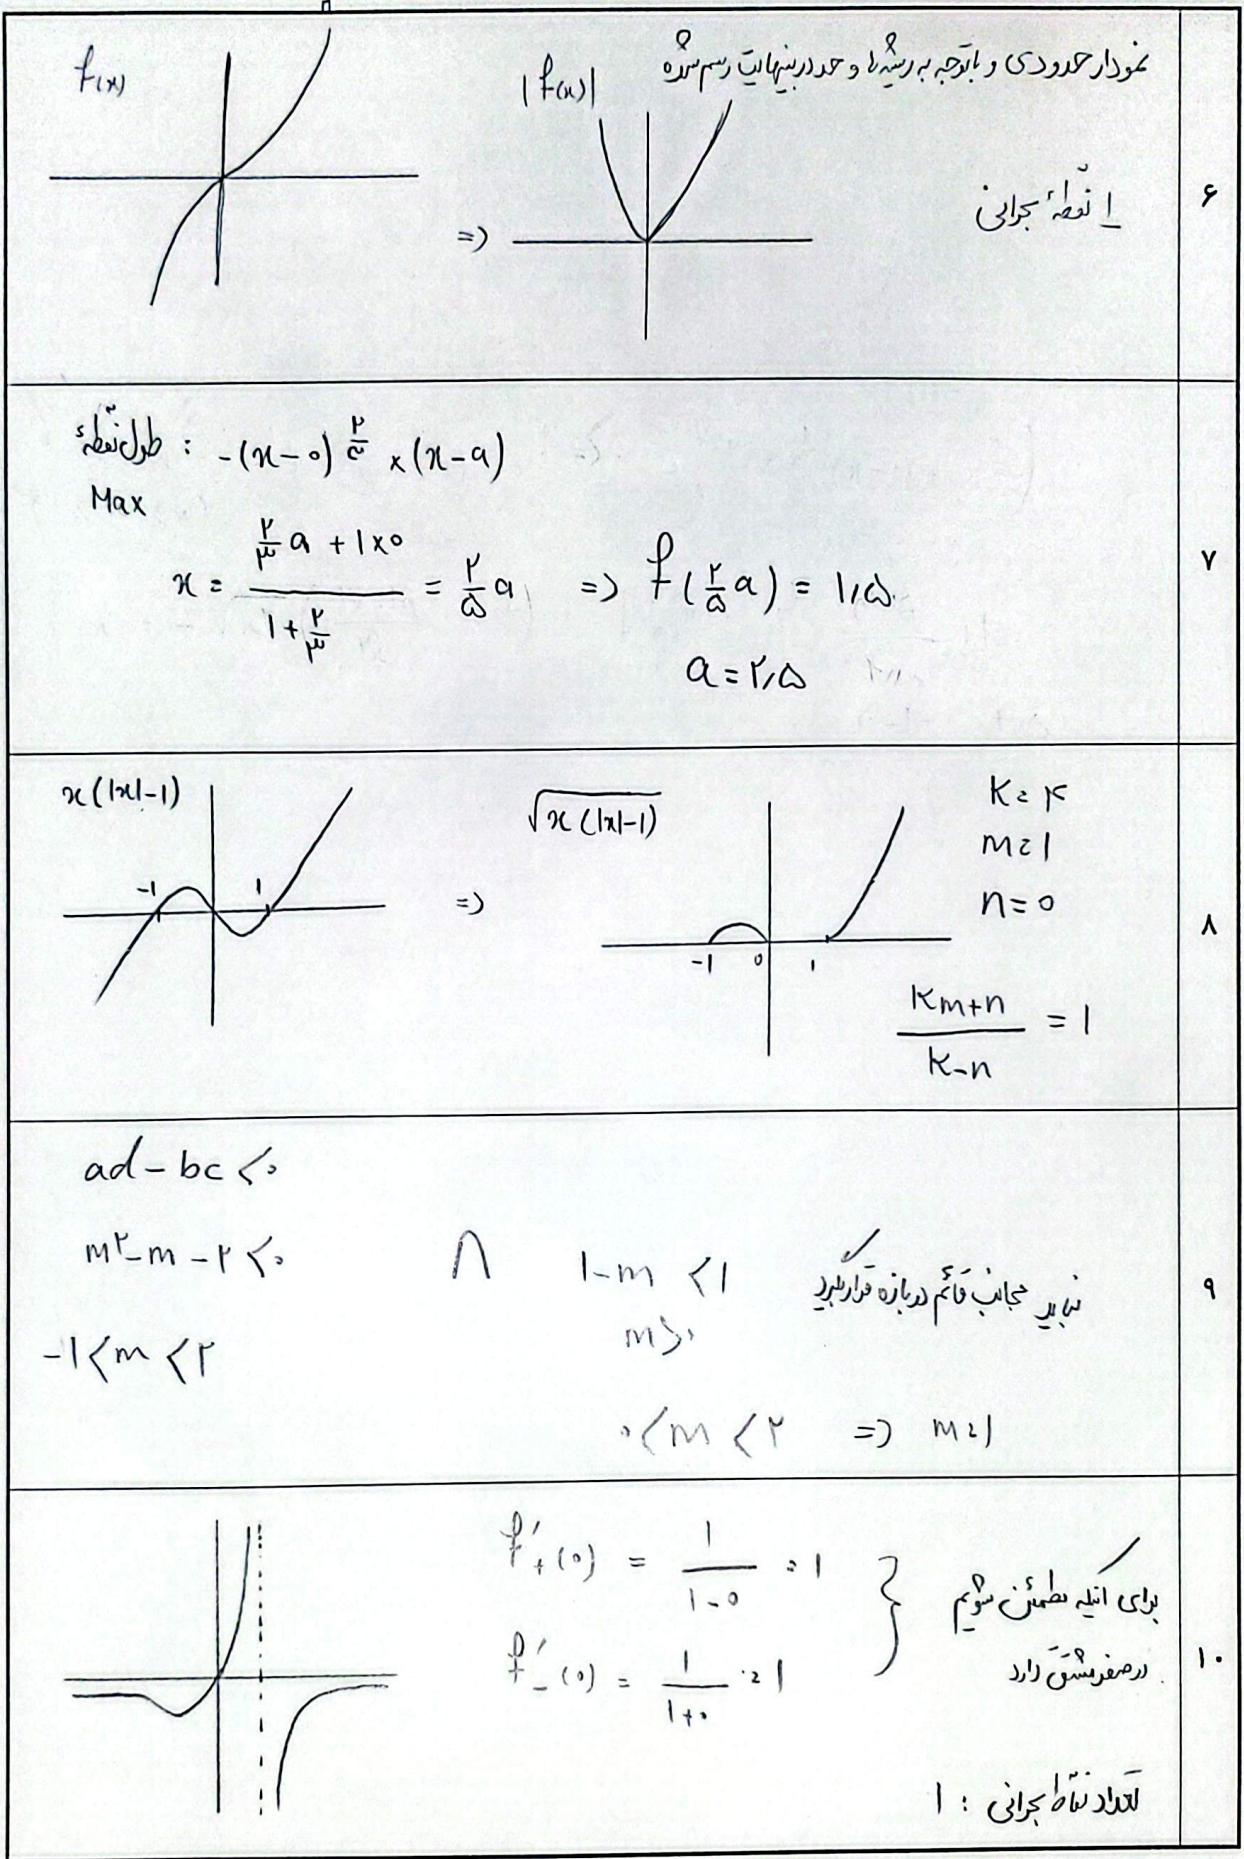 نمودار حدودی و باتوجه به ریشه ها و حد در بینهایت رسم شده
f(x)
|f(x)|
=>
۱ نقطهٔ بحرانی
۶
طول نقطهٔ Max : -(x-0)^۲/۳ × (x-a)
x = (۲/۳ a + 1×0) / (1+۲/۳) = ۲/۵ a => f(۲/۵ a) = ۱,۵
a = ۲,۵
۷
x(|x|-1)
=>
√x(|x|-1)
-1 1
-1 0 1
K=۴
m=1
n=0
(Km+n)/(K-n) = 1
۸
ad-bc<۰
m^۲-m-۲<۰ ∩ 1-m<1 نباید مجانب قائم در بازه قرار بگیرد
m>۰
-1<m<۲
۰<m<۲ => m=1
۹
f'+(۰) = 1/(1-0) = 1
f'-(۰) = 1/(1+۰) = 1
برای اینکه مطمئن شویم
در صفر مشتق دارد
تعداد نقاط بحرانی : ۱
۱۰